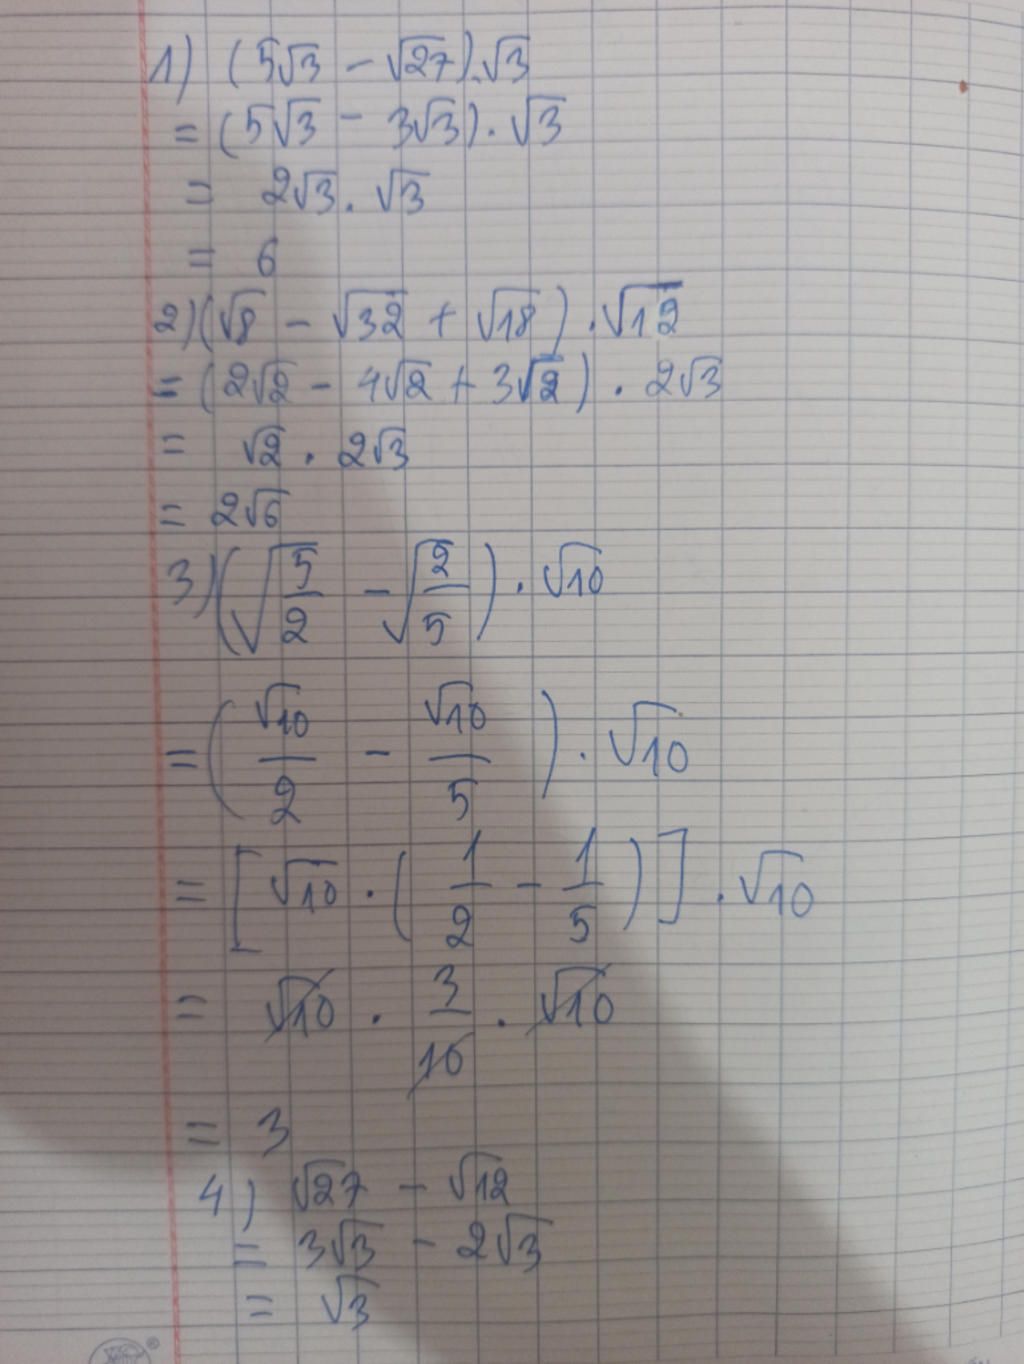 1) (5√3 - √27).√3
= (5√3 - 3√3).√3
= 2√3.√3
= 6
2) (√8 - √32 + √18).√12
= (2√2 - 4√2 + 3√2).2√3
= √2.2√3
= 2√6
3) (√(5/2) - √(2/5)).√10
= (√10/2 - √10/5).√10
= [√10.(1/2 - 1/5)].√10
= √10.3/10.√10
= 3
4) √27 - √12
= 3√3 - 2√3
= √3